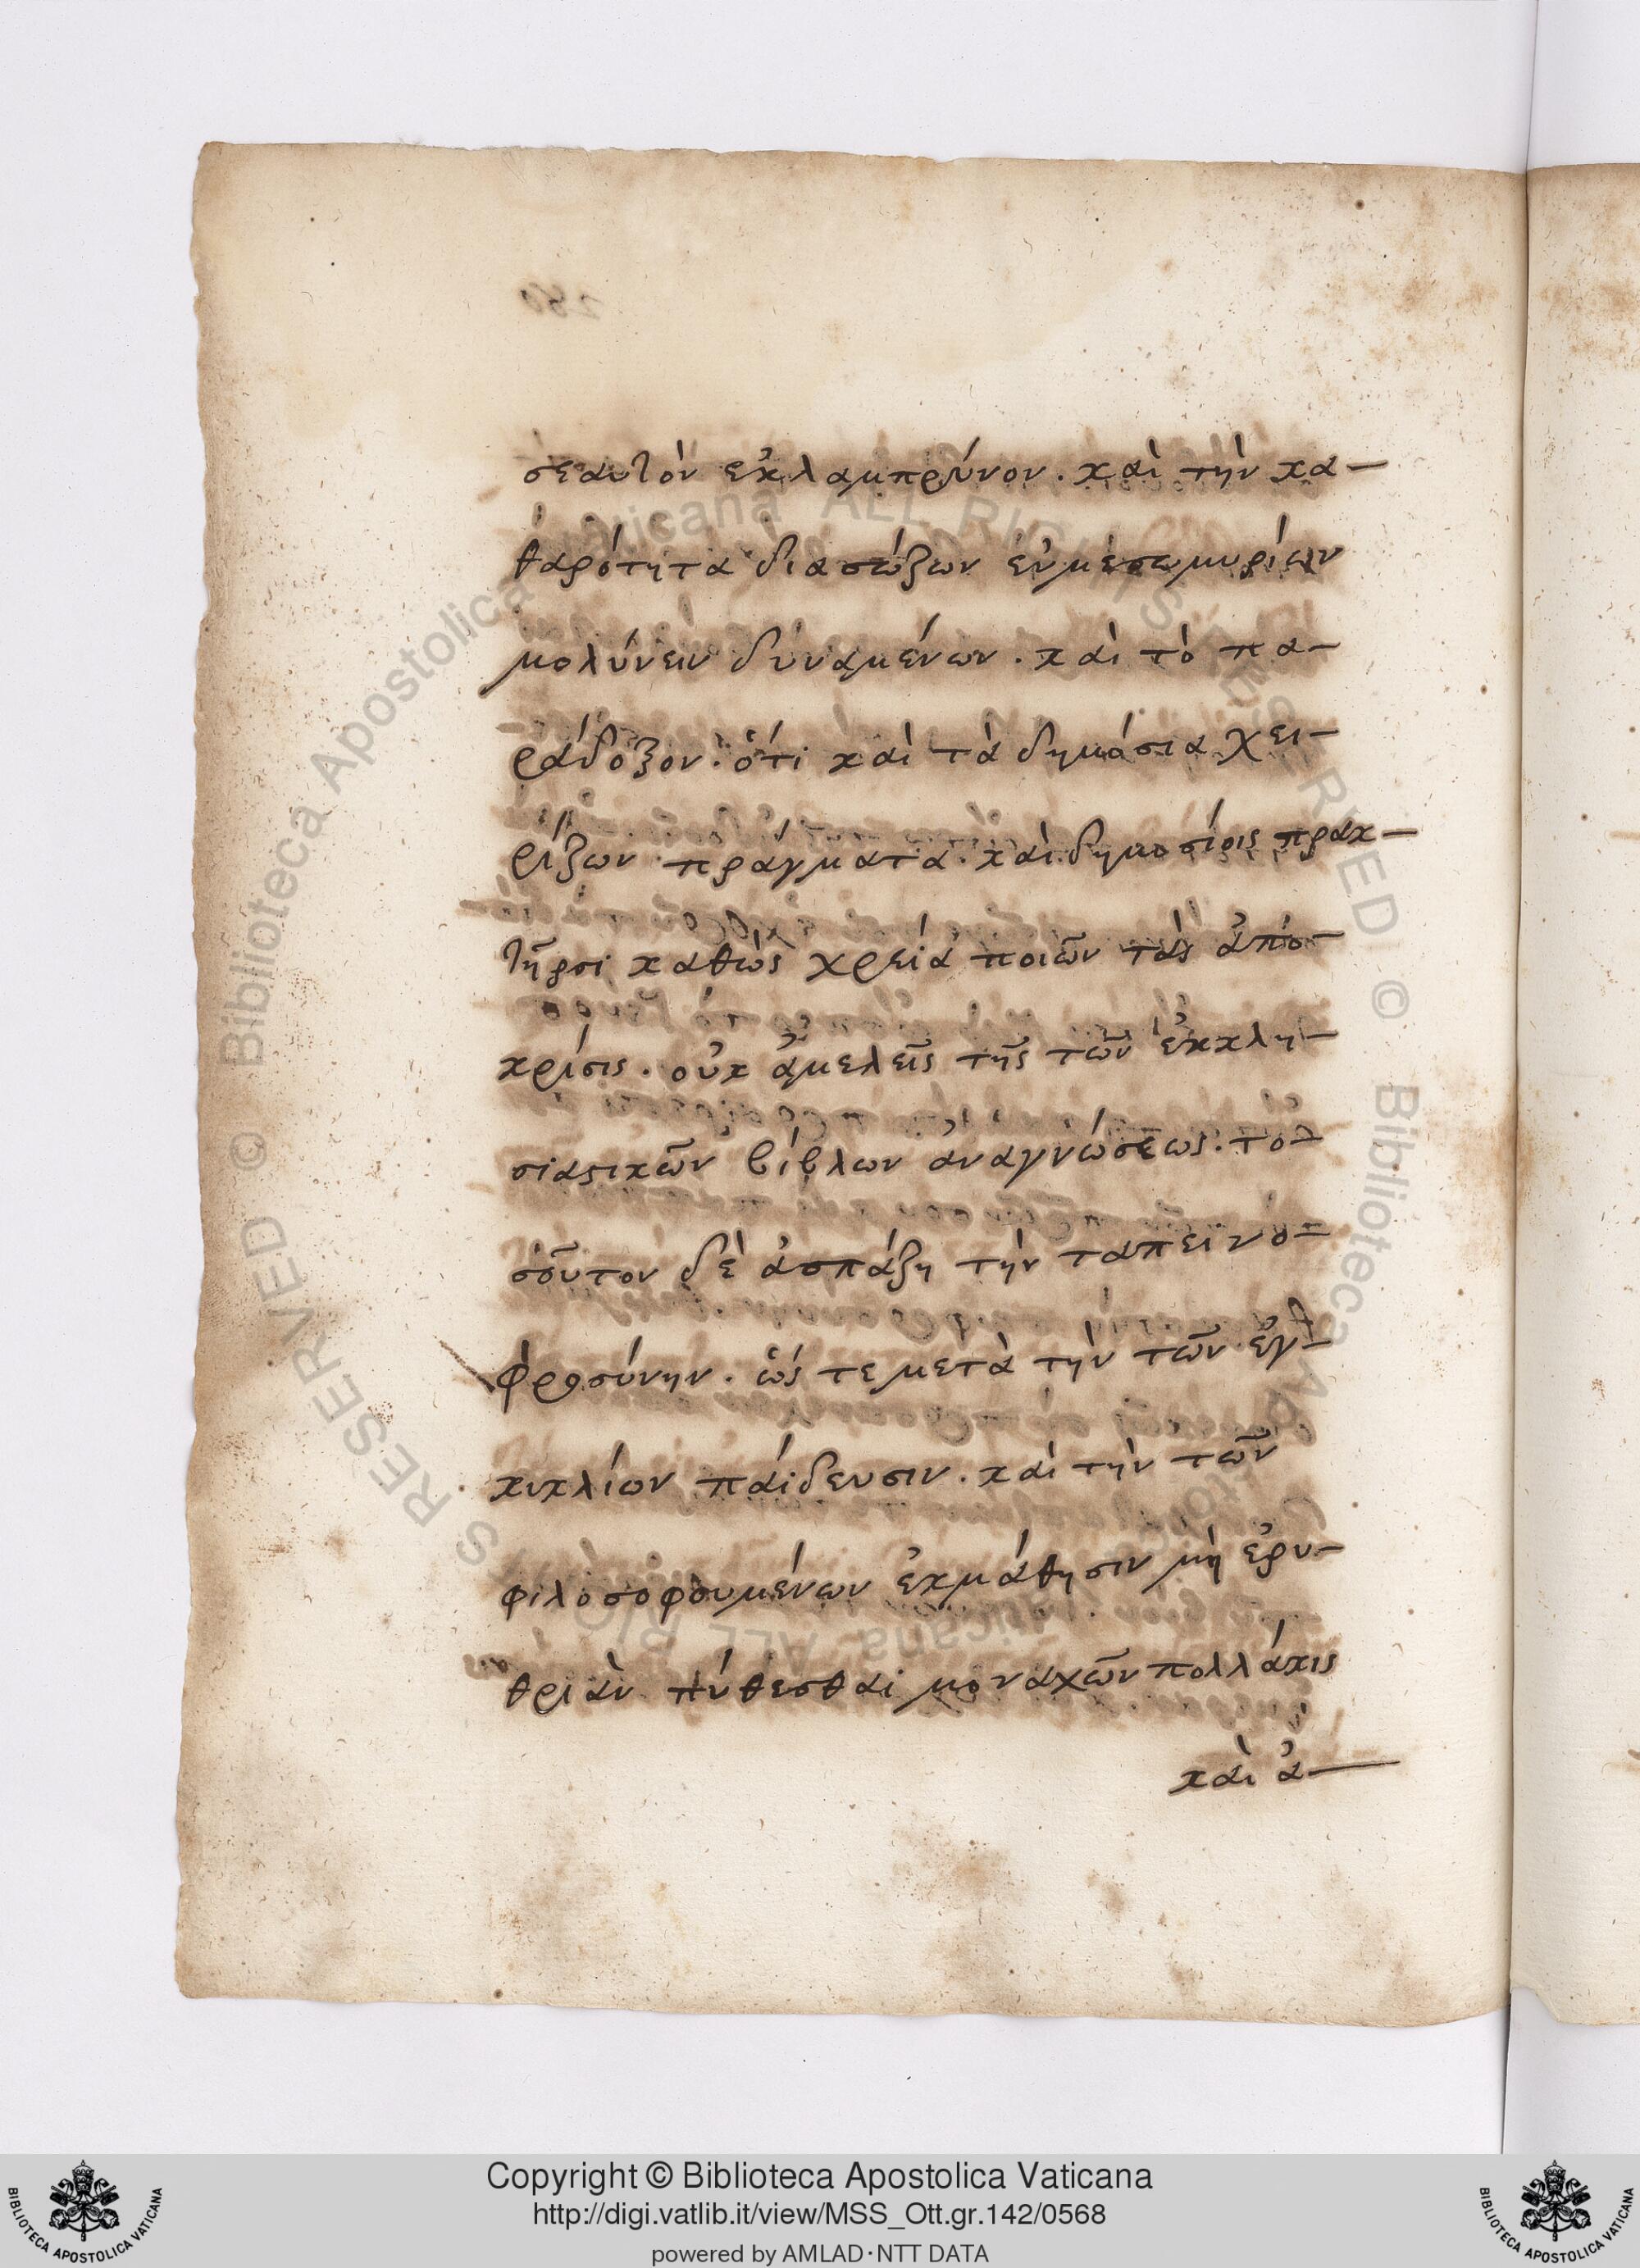 σεαυτὸν ἐκλαμπρύνον. καὶ τὴν κα–
θαρότητα διασώζων ἐνμέσω μυρίων
μολύνειν δυναμένων. καὶ τὸ πα–
ράδοξον. ὅτι καὶ τὰ δημόσια χει–
ρίζων πράγματα. καὶ δημοσίοις πρακ–
τῆρσι καθὼς χρεία ποιῶν τὰς ἀπο–
κρίσις. οὐκ ἀμελεῖς τῆς τῶν ἐκκλη–
σιαστικῶν βίβλων ἀναγνώσεως. το–
σοῦτον δὲ ἀσπάζη τὴν ταπεινο–
φροσύνην. ὥς τε μετὰ τὴν τῶν ἐγ–
κικλίων πάιδευσιν. καὶ τὴν τῶν
φιλοσοφουμένων ἐκμάθησιν μὴ ἐρυ–
θριὰν πύθεσθαι μοναχῶν πολλάκις
καὶ ἀ–
Copyright © Biblioteca Apostolica Vaticana
http://digi.vatlib.it/view/MSS_Ott.gr.142/0568
powered by AMLAD·NTT DATA
BIBLIOTECA APOSTOLICA VATICANA
BIBLIOTECA APOSTOLICA VATICANA